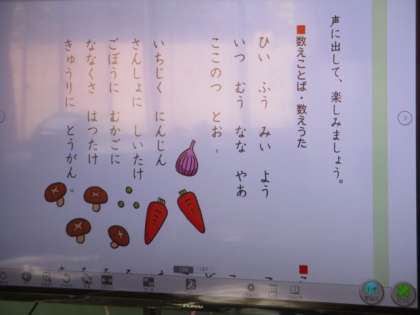 声に出して、楽しみましょう。
数えことば・数えうた
ひい　ふう　みい　よう
いつ　むう　なな　やあ
ここのつ　とお。
いちじく　にんじん
さんしょに　しいたけ
ごぼうに　むかごに
ななくさ　はつたけ
きゅうりに　とうがん。